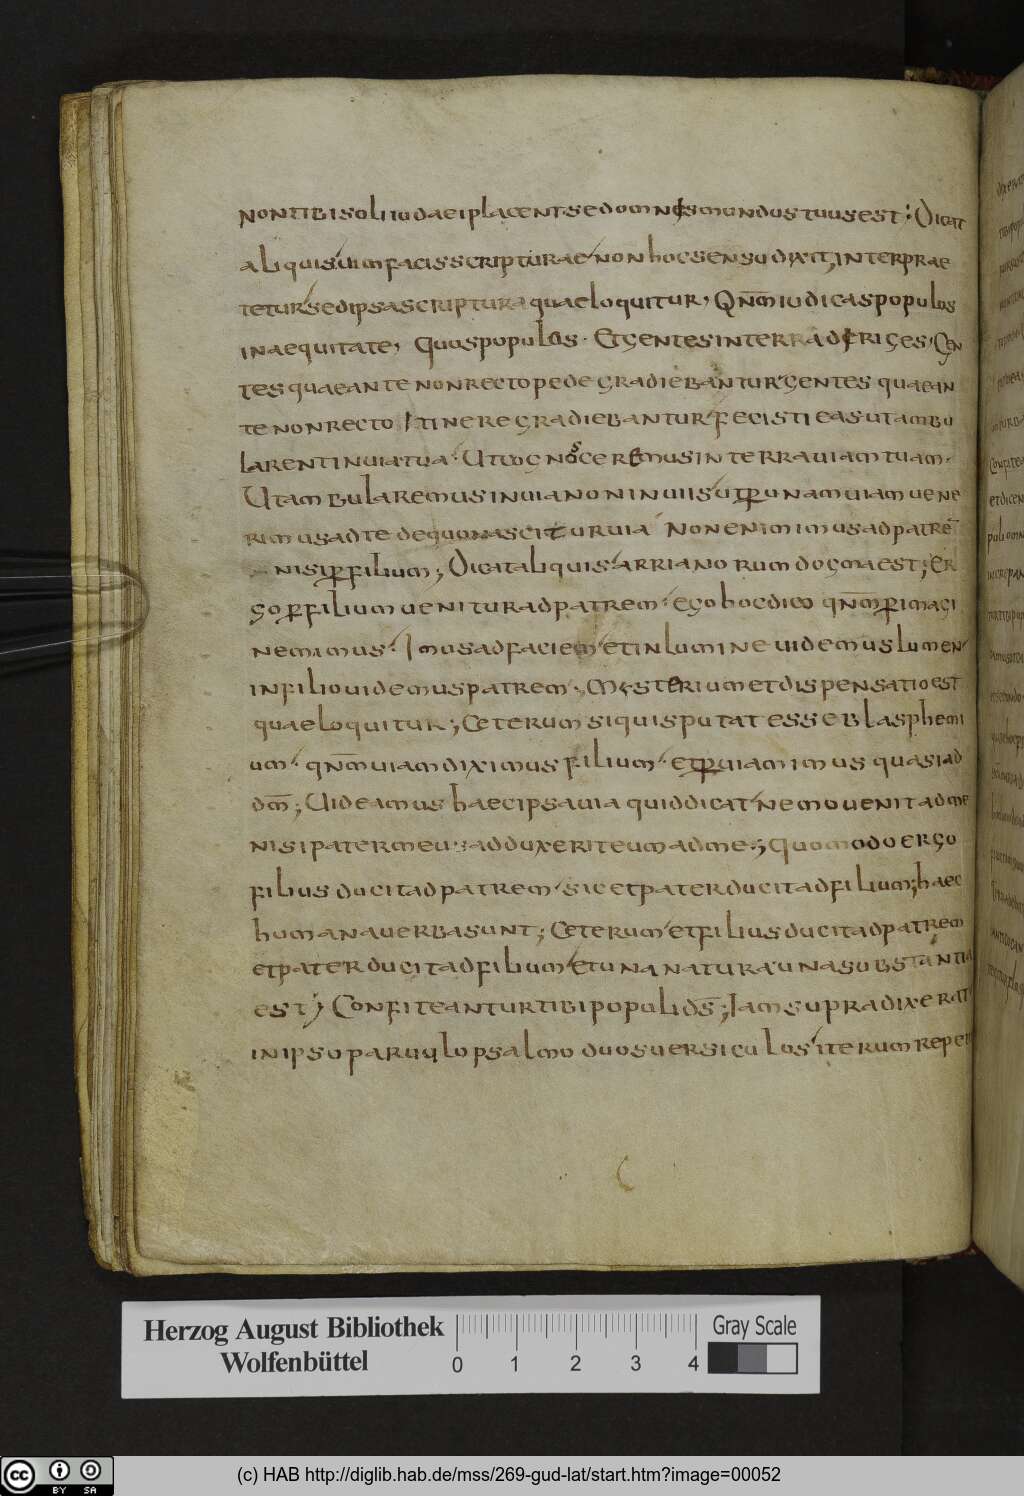 non tibi soli iudaei placent sed omnes mundus tuus est; Dicat
aliquis uim facis scripturae non hoc sensu dixit, interprae
tetur sed ipsa scriptura quae loquitur, Qnm iudicas populos
in aequitate, Quos populos. Et gentes in terra deriges, Gen
tes quae ante non recto pede gradiebantur gentes quae an
te non recto itinere gradiebantur fecisti eas ut ambu
larent in uia tua. Ut cognosceremus in terra uiam tuam.
Ut ambularemus in uia non in uiis ut per unam uiam uene
rimus ad te de quo nascitur uia Non enim imus ad patrē
nisi per filium; Dicat aliquis arrianorum dogma est; Er
go per filium uenitur ad patrem. ego hoc dico qnm per imagi
nem imus. Imus ad faciem et in lumine uidemus lumen
in filio uidemus patrem, Mysterium et dispensatio est
quae loquitur; Ceterum si quis putat esse blasphemi
um. qnm uiam diximus filium. et per uiam imus quasi ad
dm; Uideamus haec ipsa uia quid dicat nemo uenit ad me
nisi pater meus adduxerit eum ad me; Quomodo ergo
filius ducit ad patrem sic et pater ducit ad filium; haec
humana uerba sunt; Ceterum et filius ducit ad patrem
et pater ducit ad filium et una natura una substantia
est; Confiteantur tibi populi ds; Iam supra dixerat
in ipso paruulo psalmo duos uersiculos iterum repet
Herzog August Bibliothek
Wolfenbüttel
0 1 2 3 4
Gray Scale
cc BY SA
(c) HAB http://diglib.hab.de/mss/269-gud-lat/start.htm?image=00052